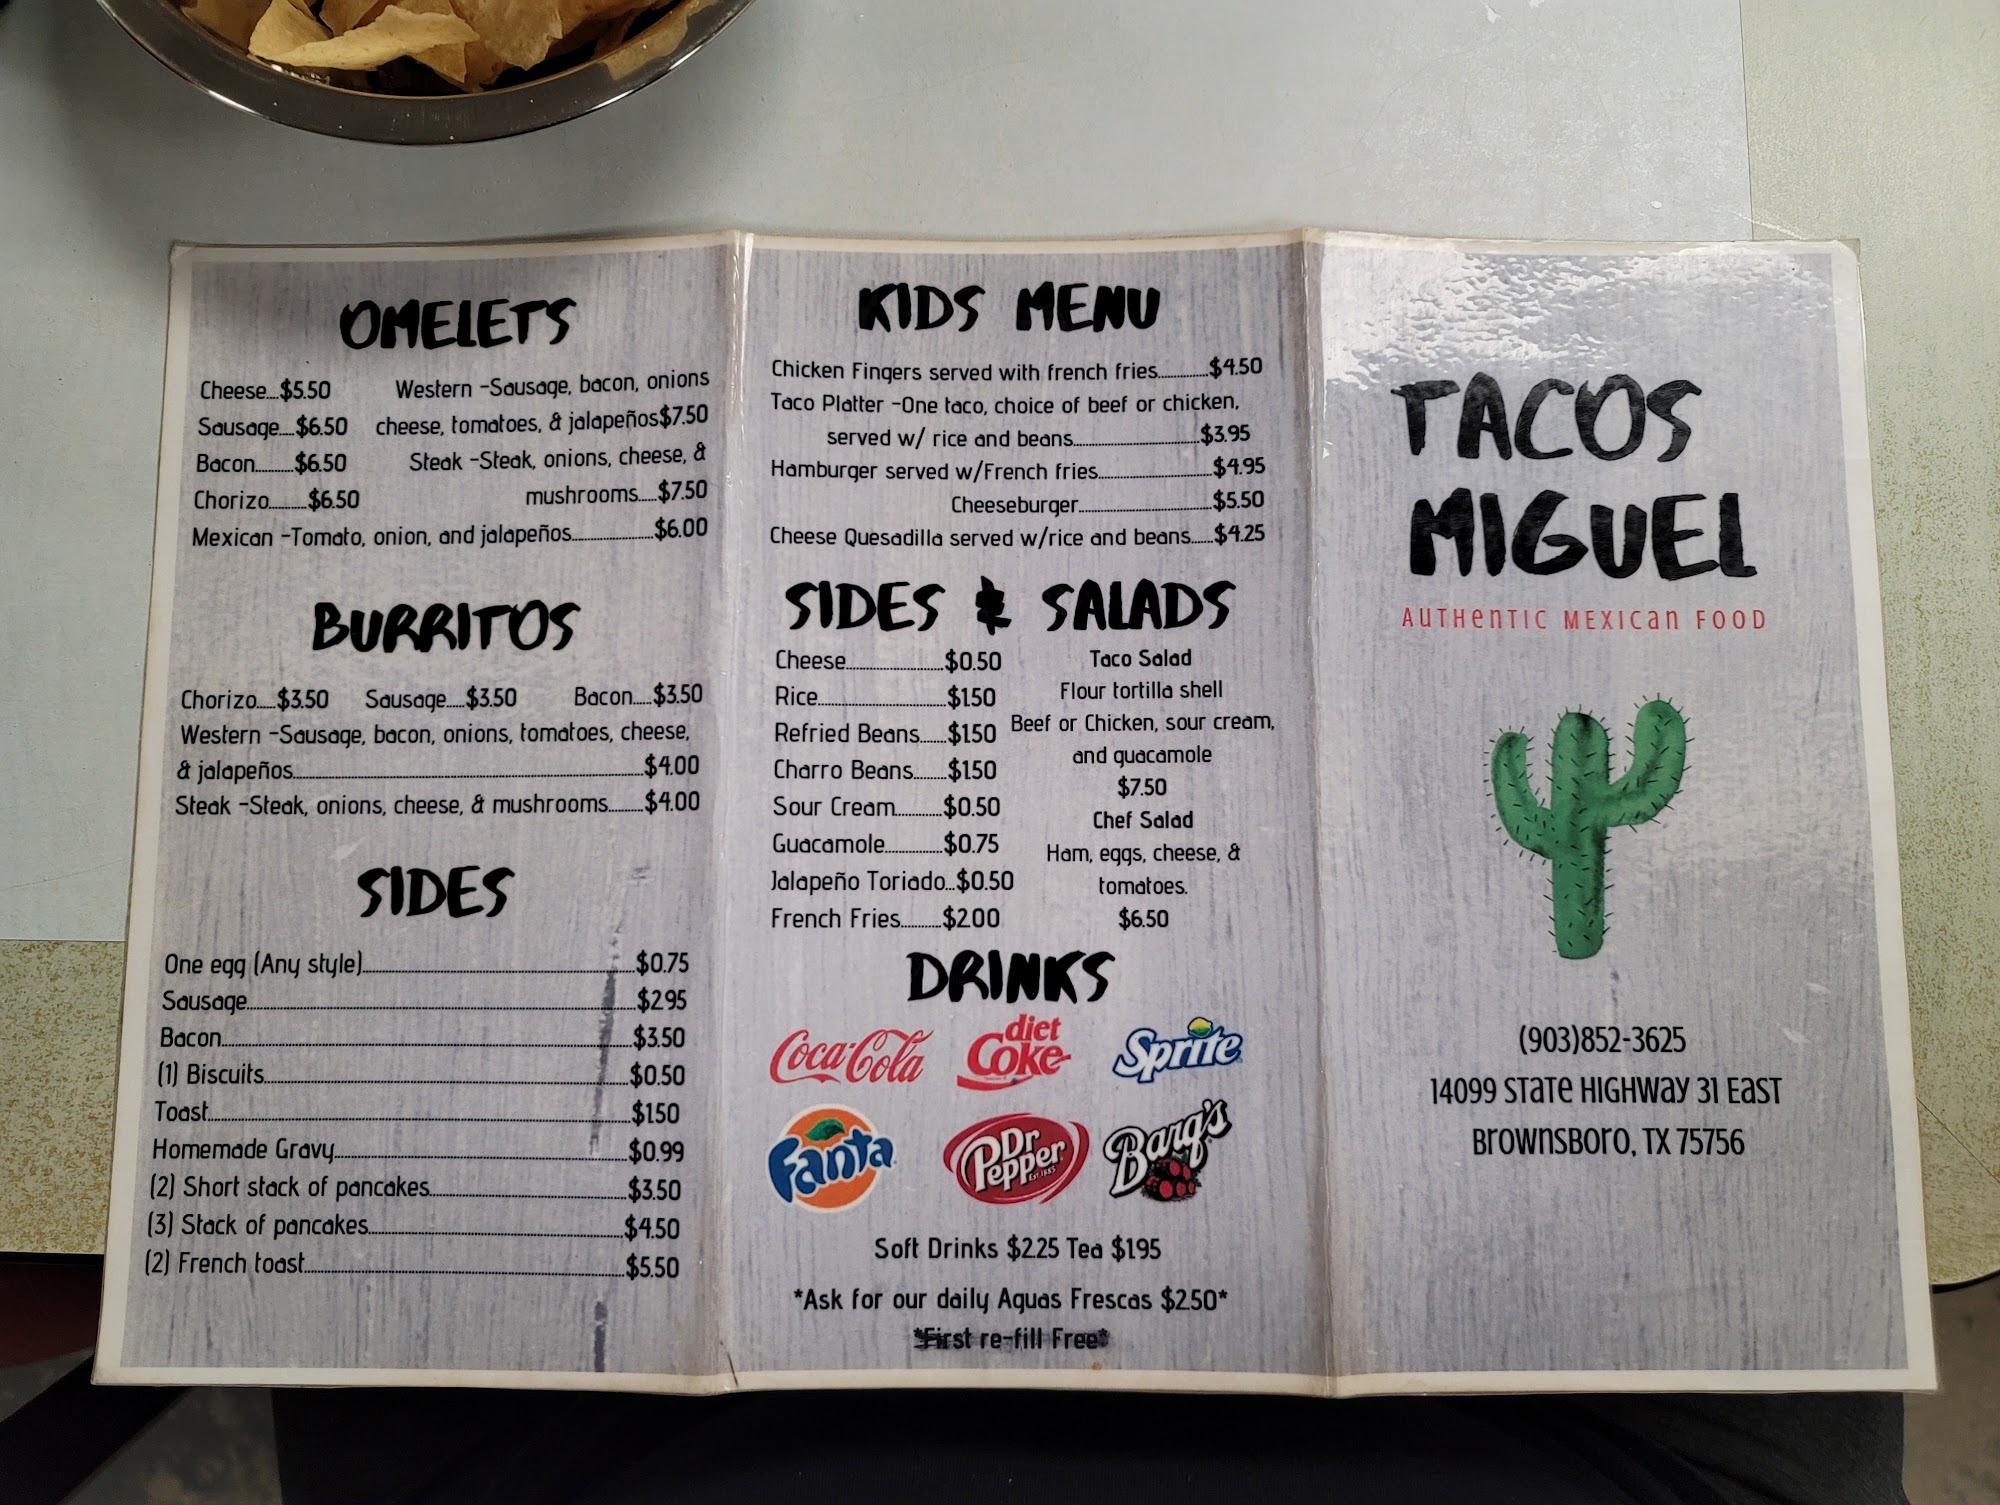 OMELETS
Cheese....$5.50
Sausage.....$6.50
Bacon..........$6.50
Chorizo..........$6.50
Western -Sausage, bacon, onions
cheese, tomatoes, & jalapeños$7.50
Steak -Steak, onions, cheese, &
mushrooms.....$7.50
Mexican -Tomato, onion, and jalapeños......................$6.00
BURRITOS
Chorizo.....$3.50 Sausage.....$3.50 Bacon.....$3.50
Western -Sausage, bacon, onions, tomatoes, cheese,
& jalapeños..........................................................$4.00
Steak -Steak, onions, cheese, & mushrooms.........$4.00
SIDES
One egg (Any style)..........................................................$0.75
Sausage..........................................................$2.95
Bacon..........................................................$3.50
(1) Biscuits..........................................................$0.50
Toast..........................................................$1.50
Homemade Gravy..........................................................$0.99
(2) Short stack of pancakes..........................................$3.50
(3) Stack of pancakes..........................................................$4.50
(2) French toast..........................................................$5.50
KIDS MENU
Chicken Fingers served with french fries.............$4.50
Taco Platter -One taco, choice of beef or chicken,
served w/ rice and beans................................$3.95
Hamburger served w/French fries.............................$4.95
Cheeseburger..................................$5.50
Cheese Quesadilla served w/rice and beans......$4.25
SIDES & SALADS
Cheese.........................$0.50
Rice.................................$1.50
Refried Beans.......$1.50
Charro Beans........$1.50
Sour Cream............$0.50
Guacamole...............$0.75
Jalapeño Toriado...$0.50
French Fries...........$2.00
Taco Salad
Flour tortilla shell
Beef or Chicken, sour cream,
and guacamole
$7.50
Chef Salad
Ham, eggs, cheese, &
tomatoes.
$6.50
DRINKS
Coca-Cola
diet Coke
Sprite
Fanta
Dr Pepper
EST. 1885
Barq's
Soft Drinks $2.25 Tea $1.95
*Ask for our daily Aguas Frescas $2.50*
*First re-fill Free*
TACOS
MIGUEL
AUTHENTIC MEXICAN FOOD
(903)852-3625
14099 STATE HIGHWAY 31 EAST
BROWNSBORO, TX 75756